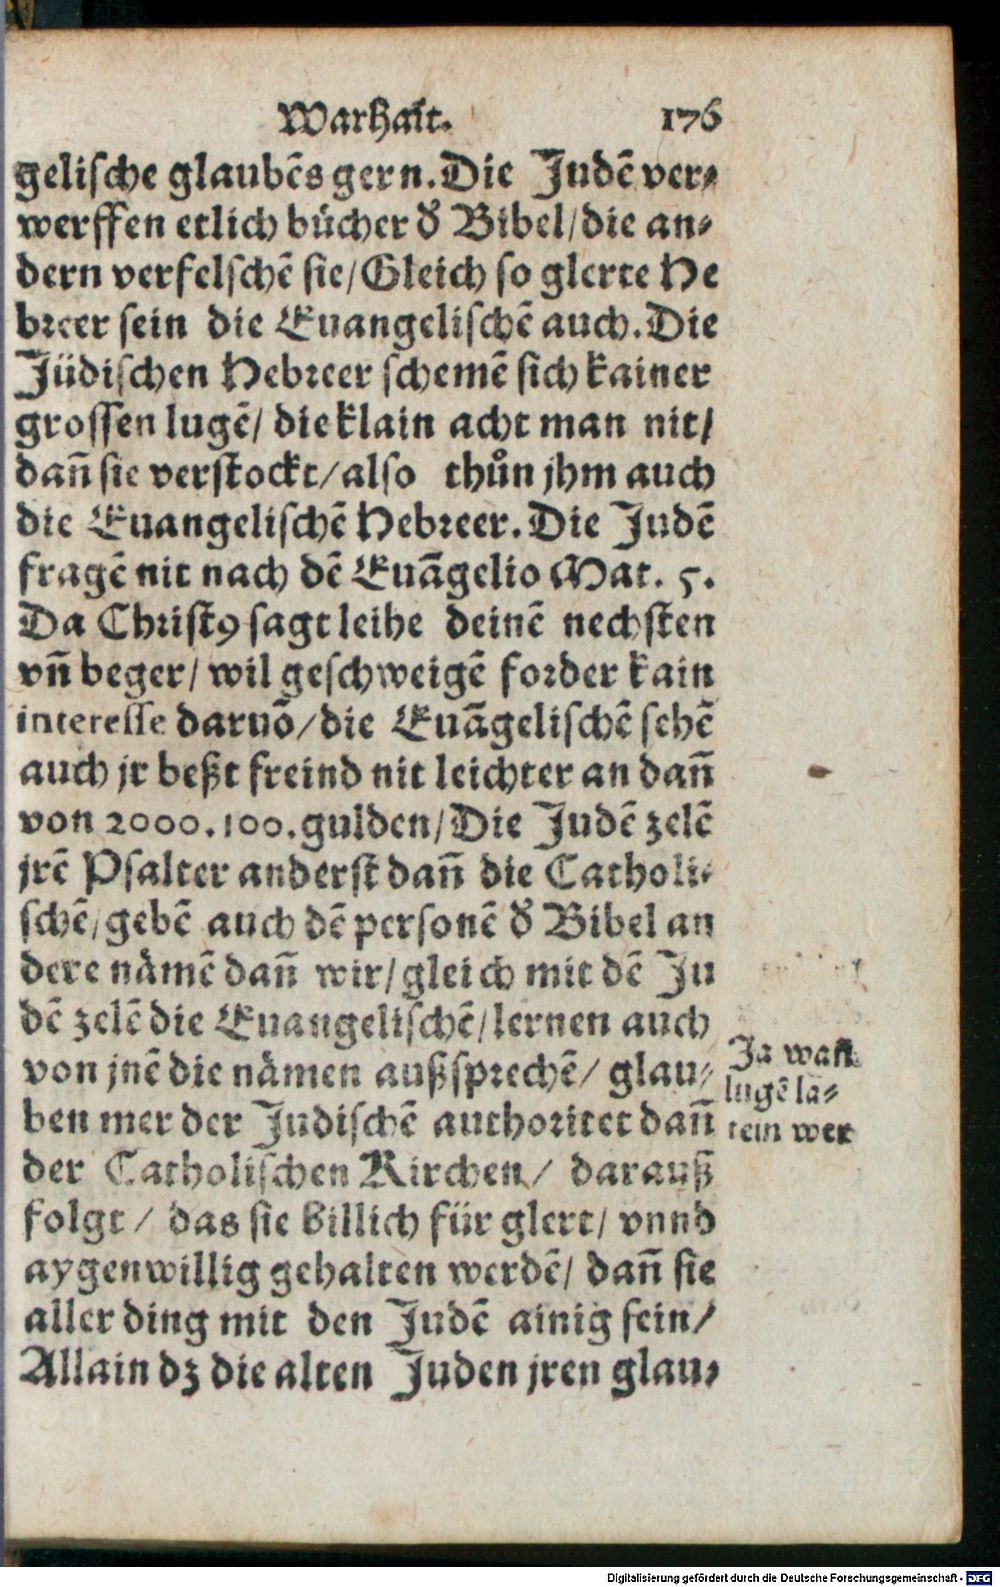 Warhait. 176
gelische glaubẽs gern. Die Judẽ ver⸗
werffen etlich bücher d̕ Bibel/die an⸗
dern verfelschẽ sie/Gleich so glerte He
breer sein die Euangelischẽ auch. Die
Jüdischen Hebreer schemẽ sich kainer
grossen lugẽ/ die klain acht man nit/
dañ sie verstockt/also thůn jhm auch
die Euangelischẽ Hebreer. Die Judẽ
fragẽ nit nach dẽ Euãgelio Mat. 5.
Da Christꝰ sagt leihe deinẽ nechsten
vñ beger/ wil geschweigẽ forder kain
interesse daruõ/die Euãgelischẽ sehẽ
auch jr beßt freind nit leichter an dañ
von 2000.100.gulden/Die Judẽ zelẽ
jrẽ Psalter anderst dañ die Catholi⸗
schẽ/gebẽ auch dẽ personẽ d̕ Bibel an
dere nämẽ dañ wir/gleich mit dẽ Ju
dẽ zelẽ die Euangelischẽ/lernen auch
von jnẽ die nämen außsprechẽ/ glau⸗
ben mer der Judischẽ authoritet dañ
der Catholischen Kirchen/ darauß
folgt/ das sie billich für glert/ vnnd
aygenwillig gehalten werdẽ/ dañ sie
aller ding mit den Judẽ ainig sein/
Allain dz die alten Juden jren glau⸗
Ja wañ
lugẽ la⸗
tein wer
Digitalisierung gefördert durch die Deutsche Forschungsgemeinschaft - DFG